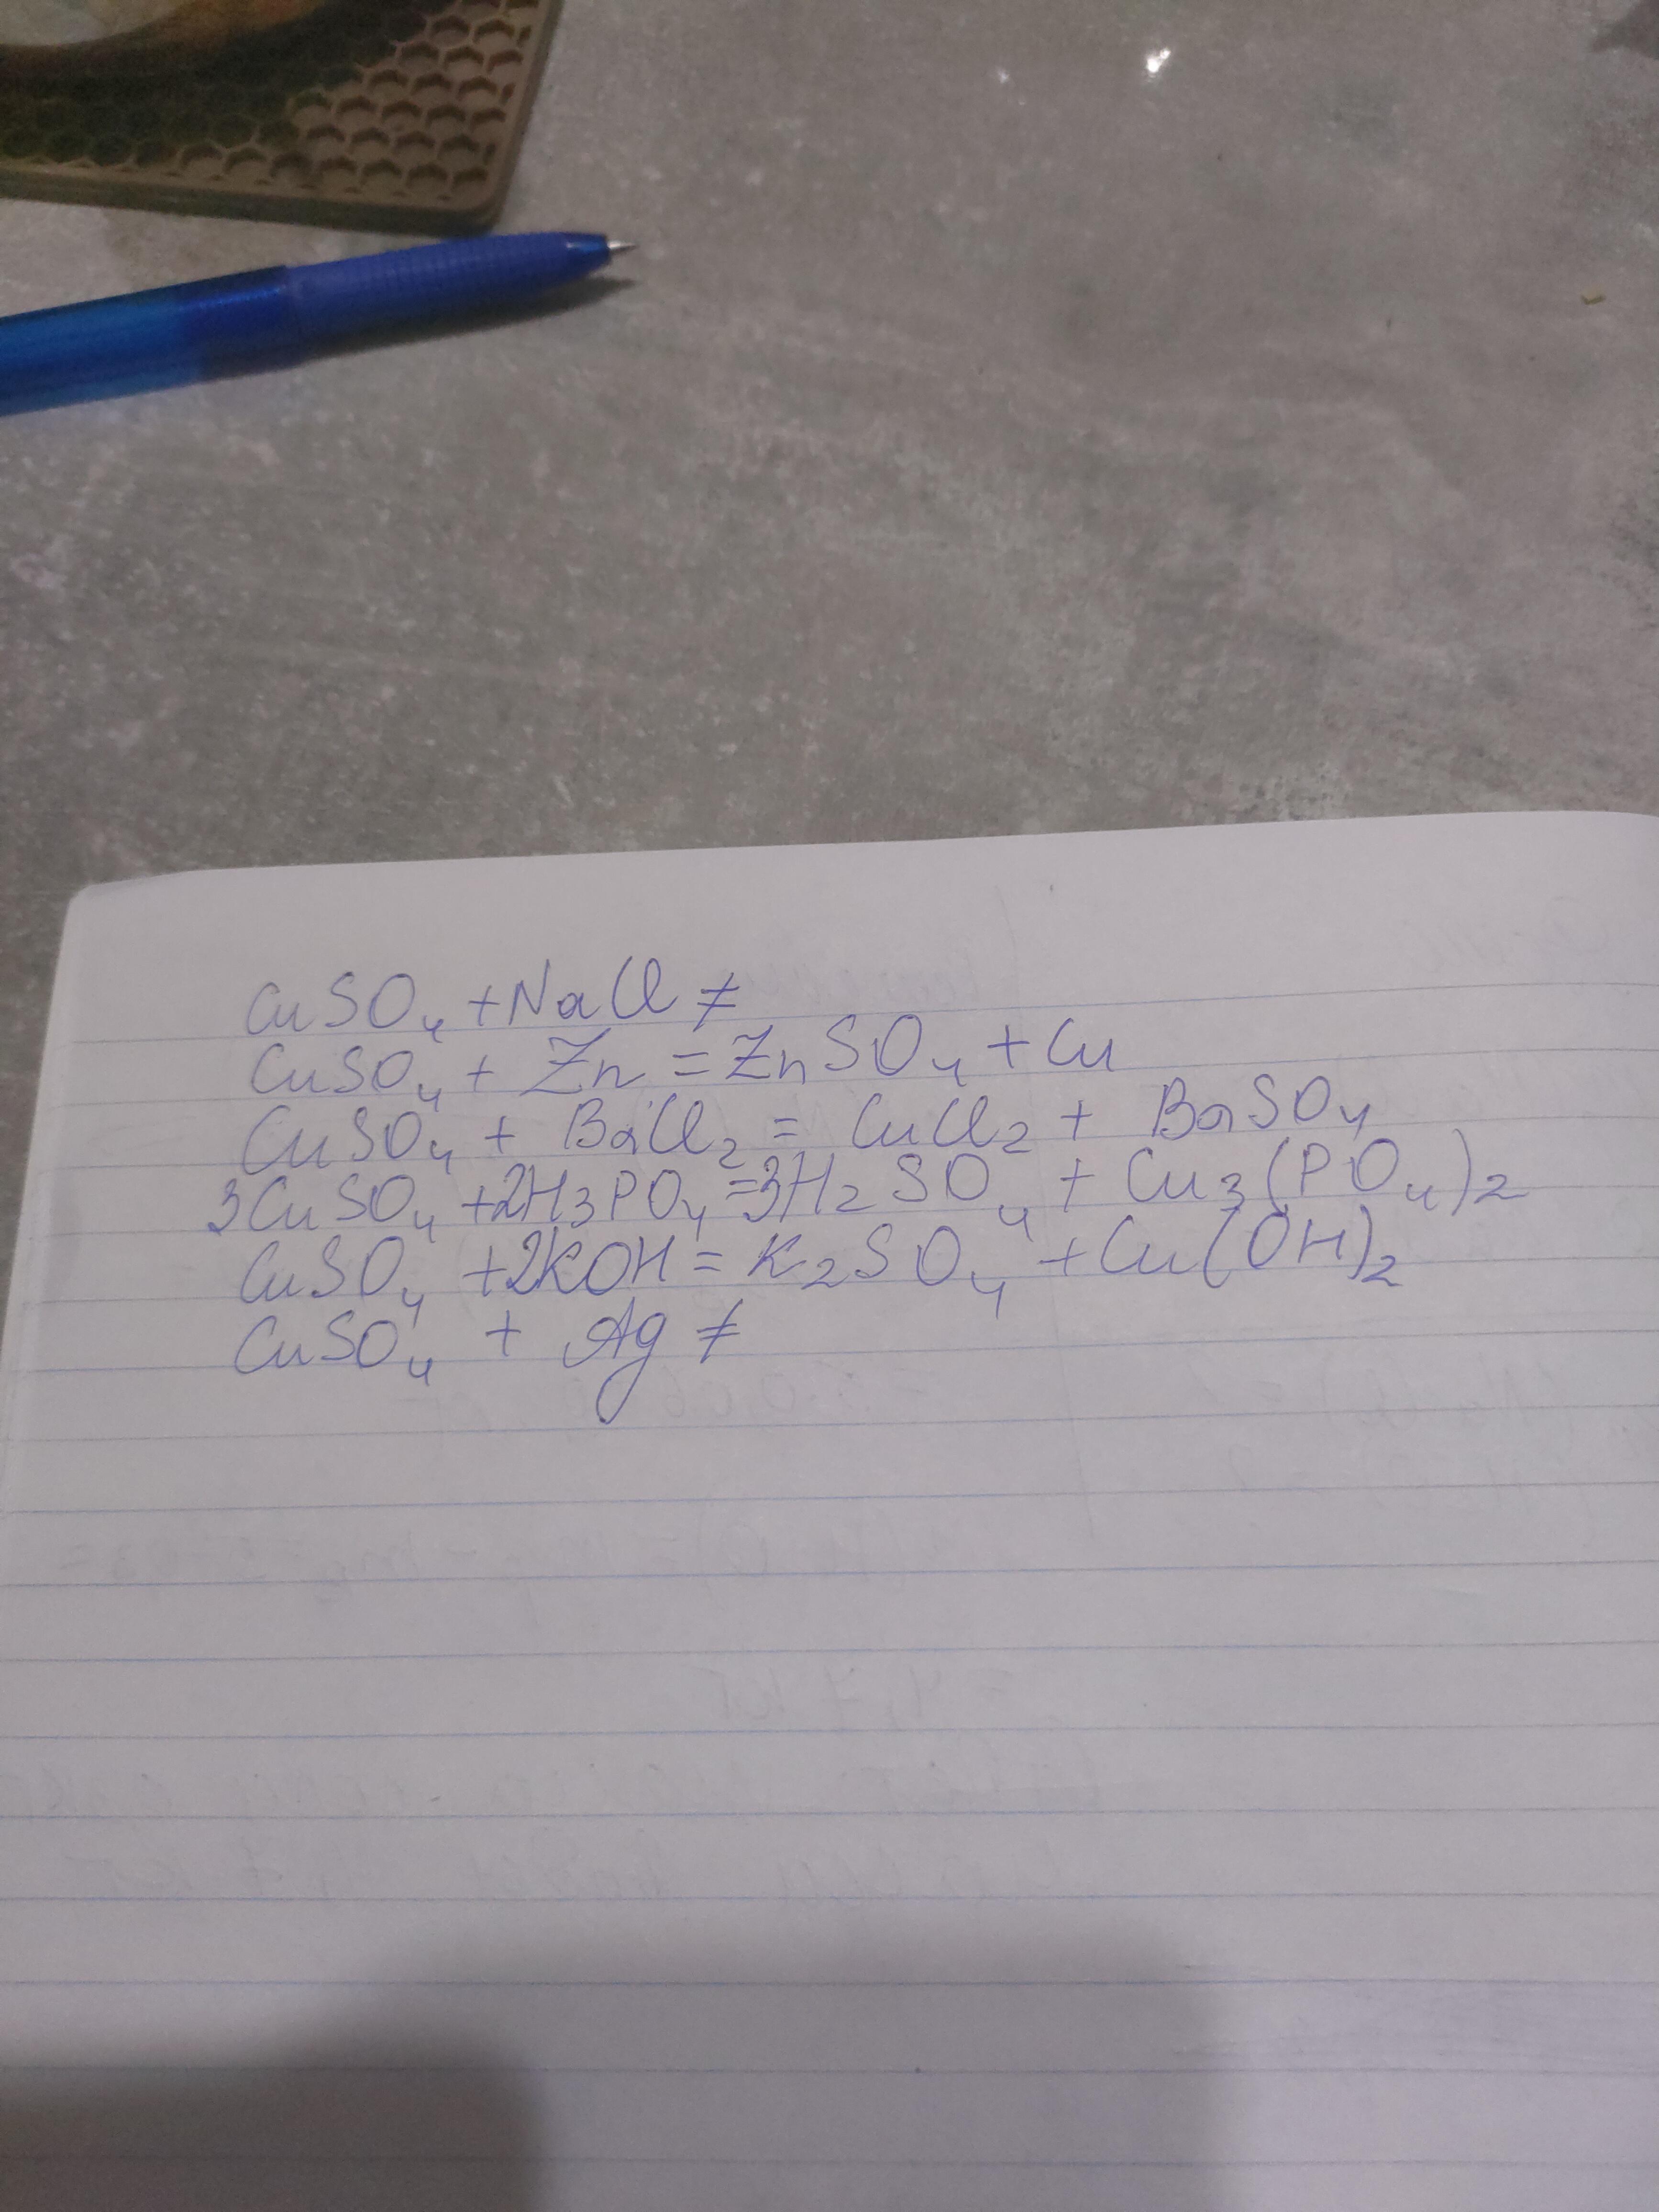 CuSO₄ + NaCl ≠
CuSO₄ + Zn = ZnSO₄ + Cu
CuSO₄ + BaCl₂ = CuCl₂ + BaSO₄
3CuSO₄ + 2H₃PO₄ = 3H₂SO₄ + Cu₃(PO₄)₂
CuSO₄ + 2KOH = K₂SO₄ + Cu(OH)₂
CuSO₄ + Ag ≠